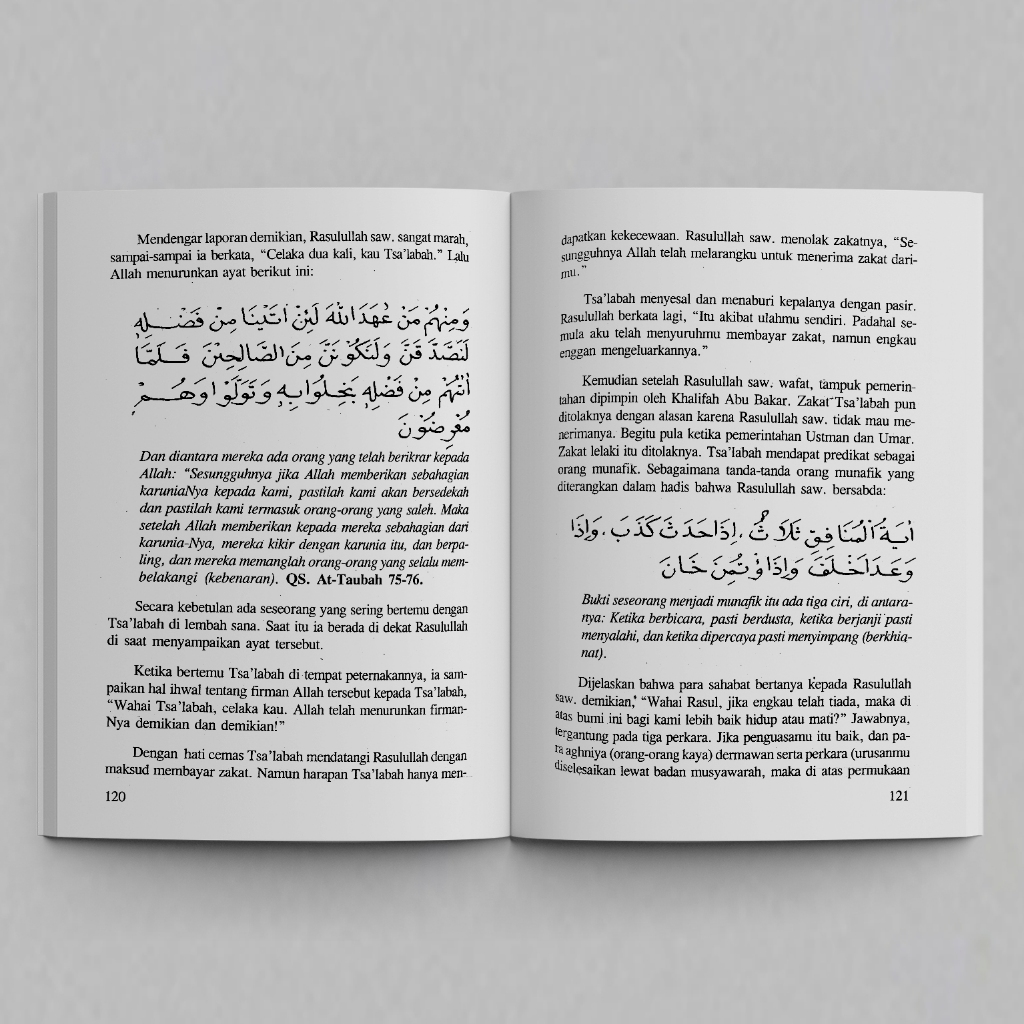 Mendengar laporan demikian, Rasulullah saw. sangat marah,
sampai-sampai ia berkata, “Celaka dua kali, kau Tsa’labah.” Lalu
Allah menurunkan ayat berikut ini:
وَمِنْهُمْ مَنْ عٰهَدَ اللّٰهَ لَئِنْ اٰتٰىنَا مِنْ فَضْلِهٖ
لَنَصَّدَّقَنَّ وَلَنَكُوْنَنَّ مِنَ الصَّالِحِيْنَ فَلَمَّا
اٰتٰهُمْ مِنْ فَضْلِهٖ بَخِلُوْا بِهٖ وَتَوَلَّوْا وَهُمْ
مُعْرِضُوْنَ
Dan diantara mereka ada orang yang telah berikrar kepada
Allah: “Sesungguhnya jika Allah memberikan sebahagian
karuniaNya kepada kami, pastilah kami akan bersedekah
dan pastilah kami termasuk orang-orang yang saleh. Maka
setelah Allah memberikan kepada mereka sebahagian dari
karunia-Nya, mereka kikir dengan karunia itu, dan berpa-
ling, dan mereka memanglah orang-orang yang selalu mem-
belakangi (kebenaran). QS. At-Taubah 75-76.
Secara kebetulan ada seseorang yang sering bertemu dengan
Tsa’labah di lembah sana. Saat itu ia berada di dekat Rasulullah
di saat menyampaikan ayat tersebut.
Ketika bertemu Tsa’labah di tempat peternakannya, ia sam-
paikan hal ihwal tentang firman Allah tersebut kepada Tsa’labah,
“Wahai Tsa’labah, celaka kau. Allah telah menurunkan firman-
Nya demikian dan demikian!”
Dengan hati cemas Tsa’labah mendatangi Rasulullah dengan
maksud membayar zakat. Namun harapan Tsa’labah hanya men-
120
dapatkan kekecewaan. Rasulullah saw. menolak zakatnya, “Se-
sungguhnya Allah telah melarangku untuk menerima zakat dari-
mu.”
Tsa’labah menyesal dan menaburi kepalanya dengan pasir.
Rasulullah berkata lagi, “Itu akibat ulahmu sendiri. Padahal se-
mula aku telah menyuruhmu membayar zakat, namun engkau
enggan mengeluarkannya.”
Kemudian setelah Rasulullah saw. wafat, tampuk pemerin-
tahan dipimpin oleh Khalifah Abu Bakar. Zakat Tsa’labah pun
ditolaknya dengan alasan karena Rasulullah saw. tidak mau me-
nerimanya. Begitu pula ketika pemerintahan Ustman dan Umar.
Zakat lelaki itu ditolaknya. Tsa’labah mendapat predikat sebagai
orang munafik. Sebagaimana tanda-tanda orang munafik yang
diterangkan dalam hadis bahwa Rasulullah saw. bersabda:
اٰيَةُ الْمُنَافِقِ ثَلَاثٌ ، اِذَا حَدَثَ كَذَبَ ، وَاِذَا
وَعَدَ اَخْلَفَ وَاِذَا اؤْتُمِنَ خَانَ
Bukti seseorang menjadi munafik itu ada tiga ciri, di antara-
nya: Ketika berbicara, pasti berdusta, ketika berjanji pasti
menyalahi, dan ketika dipercaya pasti menyimpang (berkhia-
nat).
Dijelaskan bahwa para sahabat bertanya kepada Rasulullah
saw. demikian, “Wahai Rasul, jika engkau telah tiada, maka di
atas bumi ini bagi kami lebih baik hidup atau mati?” Jawabnya,
tergantung pada tiga perkara. Jika penguasamu itu baik, dan pa-
ra aghniya (orang-orang kaya) dermawan serta perkara (urusanmu
diselesaikan lewat badan musyawarah, maka di atas permukaan
121